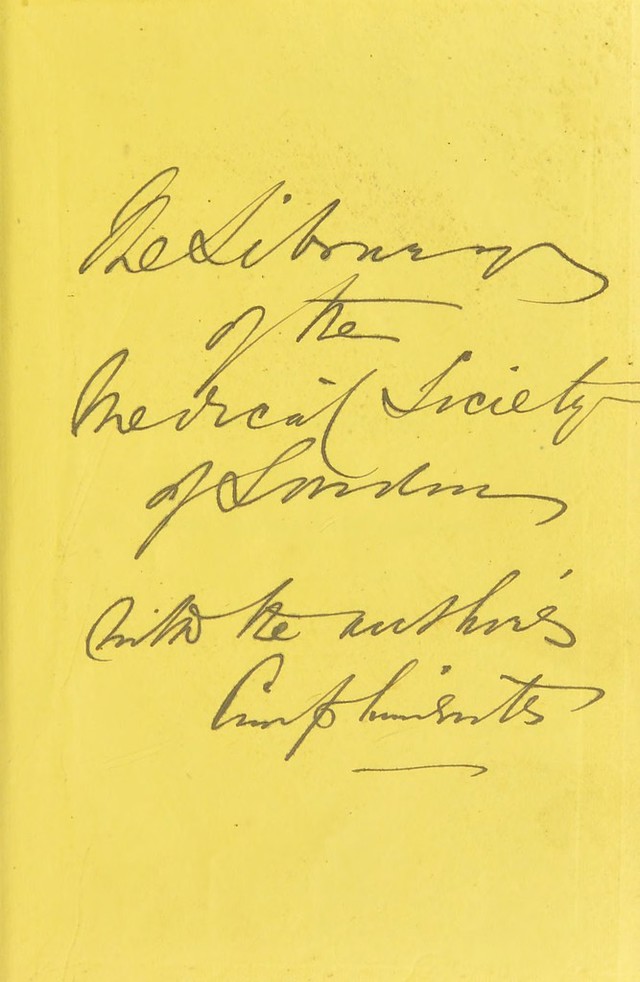 The Library
of the
Medical Society
of London
with the author's
Compliments